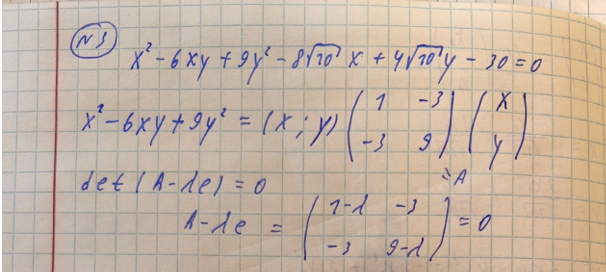 №3
x² - 6xy + 9y² - 8√10 x + 4√10 y - 30 = 0
x² - 6xy + 9y² = (x ; y) ( 1 -3 ) ( x )
( -3 9 ) ( y )
= A
det (A - λe) = 0
A - λe = ( 1-λ -3 ) = 0
( -3 9-λ )